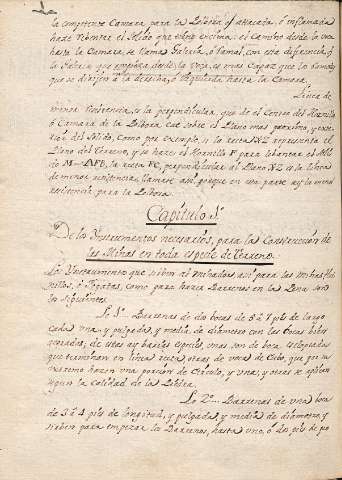 la competente Camara para la Polvora qe attacada, ó inflamada
hace rebentar el Solido que está encima: el camino desde la voca
hasta la Camara, se llama Galeria, ó Ramal, con esta diferencia, q
la Galeria que empieza desde la voca, es mas Capaz que los Ramales
que se dirijen a la derecha, ó Izquierda hasta la Camara.
Linea de
menor resistencia, es la perpendicular, que de el Centro del Hornillo
ó Camara de la Polvora cae sobre el Plano mas proximo, y exte-
rior del Solido, Como por exemplo, si la recta NZ representa el
Plano del Terreno, y se hace el Hornillo F para lebantar el Soli-
do M-AFB, la recta FC, perpendicular al Plano NZ es la linea
de menor resistencia, llamase asi, porque en esta parte ay la menor
resistencia para la Polvora.
Capitulo 3º
De los Instrumentos necesarios, para la Construccion de
las Minas en toda especie de Terreno.
Los Instrumentos que sirben al Minador, asi para las minas, Hor-
nillos, ó Fogatas, como para hacer Barrenas en la Peña son
los siguientes.
Lo 1º Barrenas de dos bocas de 5 á 7 pies de largo
cada una, y pulgada, y media de diametro con las bocas bien
azeradas, de estas ay barias especies, unas son de boca
que terminan en linea recta, otras de una de
extremo hacen una porcion de Circulo, y unas, y otras se aplican
segun la calidad de la Piedra.
Lo 2º Barrenas de una boca
de 3 á 4 pies de longitud, y pulgada, y media de diametro, y
sirben para empezar los Barrenos, hasta uno, ó dos pies de pro